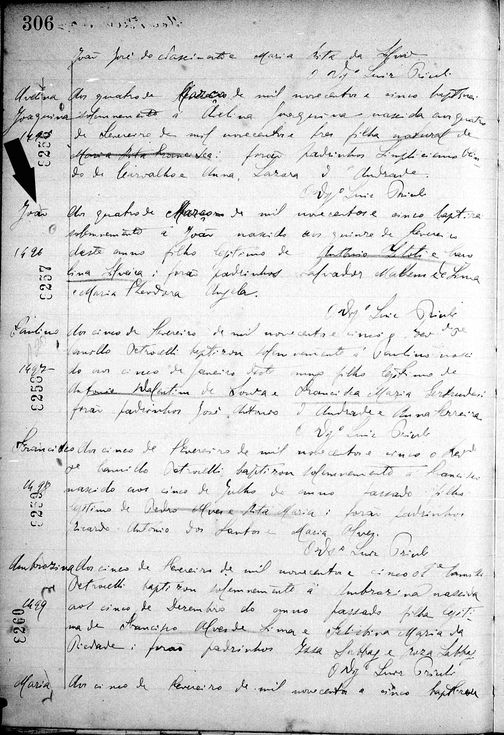 306
João José do Nascimento e Maria Rita da
O Vigº Luiz Priuli
Avelina Aos quatro de Março de mil novecentos e cinco baptizei
Joaquina solemnemente á Avelina Joaquina nascida aos quatro
1495 de Fevereiro de mil novecentos e tres filha natural de
8256 Maria Rita Francisca: forão padrinhos
do de Carvalho e Anna Lazara d' Andrade.
O Vigº Luiz Priuli
João Aos quatro de Março de mil novecentos e cinco baptizei
solemnemente á João nascido aos quinze de Fevereiro
1496 deste anno filho legitimo de Antonio e
8257 lina : forão padrinhos Salvador e
e Maria Theodora Angela.
O Vigº Luiz Priuli
Paulino Aos cinco de Fevereiro de mil novecentos e cinco o
Camillo Petrocelli baptizou solemnemente á Paulino nasci
1497 do aos cinco de Janeiro deste anno filho legitimo de
8258 Antonio Valentim de Souza e Francisca Maria
forão padrinhos José Antonio d' Andrade e Anna Ferreira
O Vigº Luiz Priuli
Francisco Aos cinco de Fevereiro de mil novecentos e cinco o
Camillo Petrocelli baptizou solemnemente á Francisco
1498 nascido aos cinco de Julho do anno passado filho
8259 legitimo de Pedro Alves e Rita Maria: forão padrinhos
Ricardo Antonio dos Santos e Maria Alves.
O Vigº Luiz Priuli
Ambrozina Aos cinco de Fevereiro de mil novecentos e cinco o Camillo
Petrocelli baptizou solemnemente á Ambrozina nascida
1499 aos cinco de Dezembro do anno passado filha legiti
8260 ma de Francisco Alves de Lima e Maria da
Piedade: forão padrinhos
O Vigº Luiz Priuli
Maria Aos cinco de Fevereiro de mil novecentos e cinco baptizou